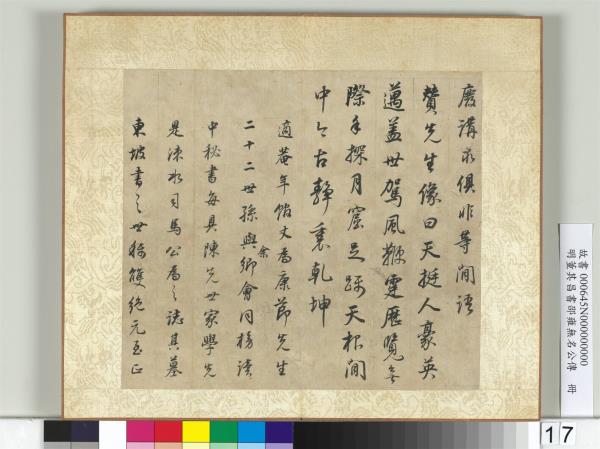 廢講求俱非等閒語
贊先生像曰天挺人豪英
邁蓋世駕風鞭霆歷覽無
際手探月窟足躡天根閒
中今古靜裏乾坤
適菴年伯丈為康節先生
二十二世孫與卿會同榜讀
余
中秘書每具陳先世家學先
是涑水司馬公為之誌其墓
東坡書之世稱雙絕元至正
故書000645N000000000
明董其昌書邵雍無名公傳 冊
17